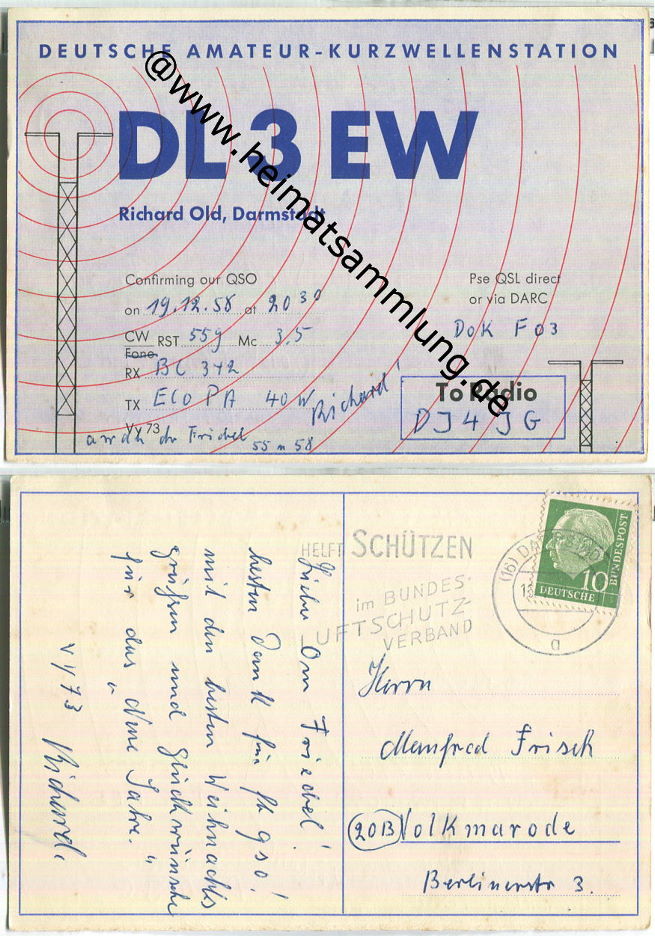 DEUTSCHE AMATEUR-KURZWELLENSTATION
DL 3 EW
Richard Old, Darmstadt
@www.heimatsammlung.de
Confirming our QSO
on 19.12.58 at 20 30
CW RST 559 Mc 3,5
Fone
RX BC 342
TX ECO PA 40 W
Vy 73
Richard!
55 n 58
Pse QSL direct
or via DARC
DOK F03
To Radio
DJ4JG
HELFT SCHÜTZEN
im BUNDES-
LUFTSCHUTZ-
VERBAND
(16) DARMSTADT
a
10
DEUTSCHE
BUNDESPOST
Herrn
Manfred Frisch
20B Volkmarode
Berlinerstr 3.
Lieber Om Friedel!
besten Dank für fb qso!
mit den besten Weihnachts
grüßen und Glückwünsche
für das Neue Jahr.
vy 73 Richard.